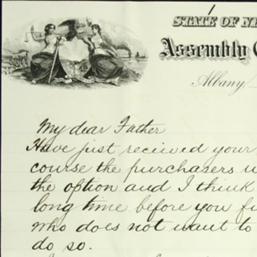 STATE OF NE
Assembly C
Albany
My dear Father
Have just recieved your
course the purchasers w
the option and I think
long time before you fi
who does not want to
do so.